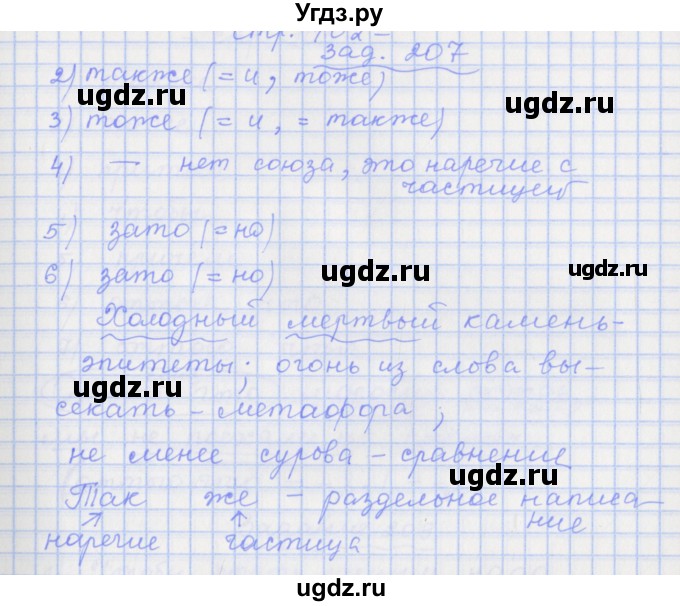 Угдз.ру
стр. 102 -
зад. 207
2) также (= и, тоже)
ugdz.ru ugdz.ru
3) тоже (= и, = также)
4) — нет союза, это наречие с
частицей
5) зато (= но)
ugdz.ru ugdz.ru
6) зато (= но)
Холодный мертвый камень-
эпитеты; огонь из слова вы-
ugdz.ru ugdz.ru
секать - метафора;
не менее сурова - сравнение
ugdz.ru
Так же - раздельное написа-
ние
наречие частица
ugdz.ru